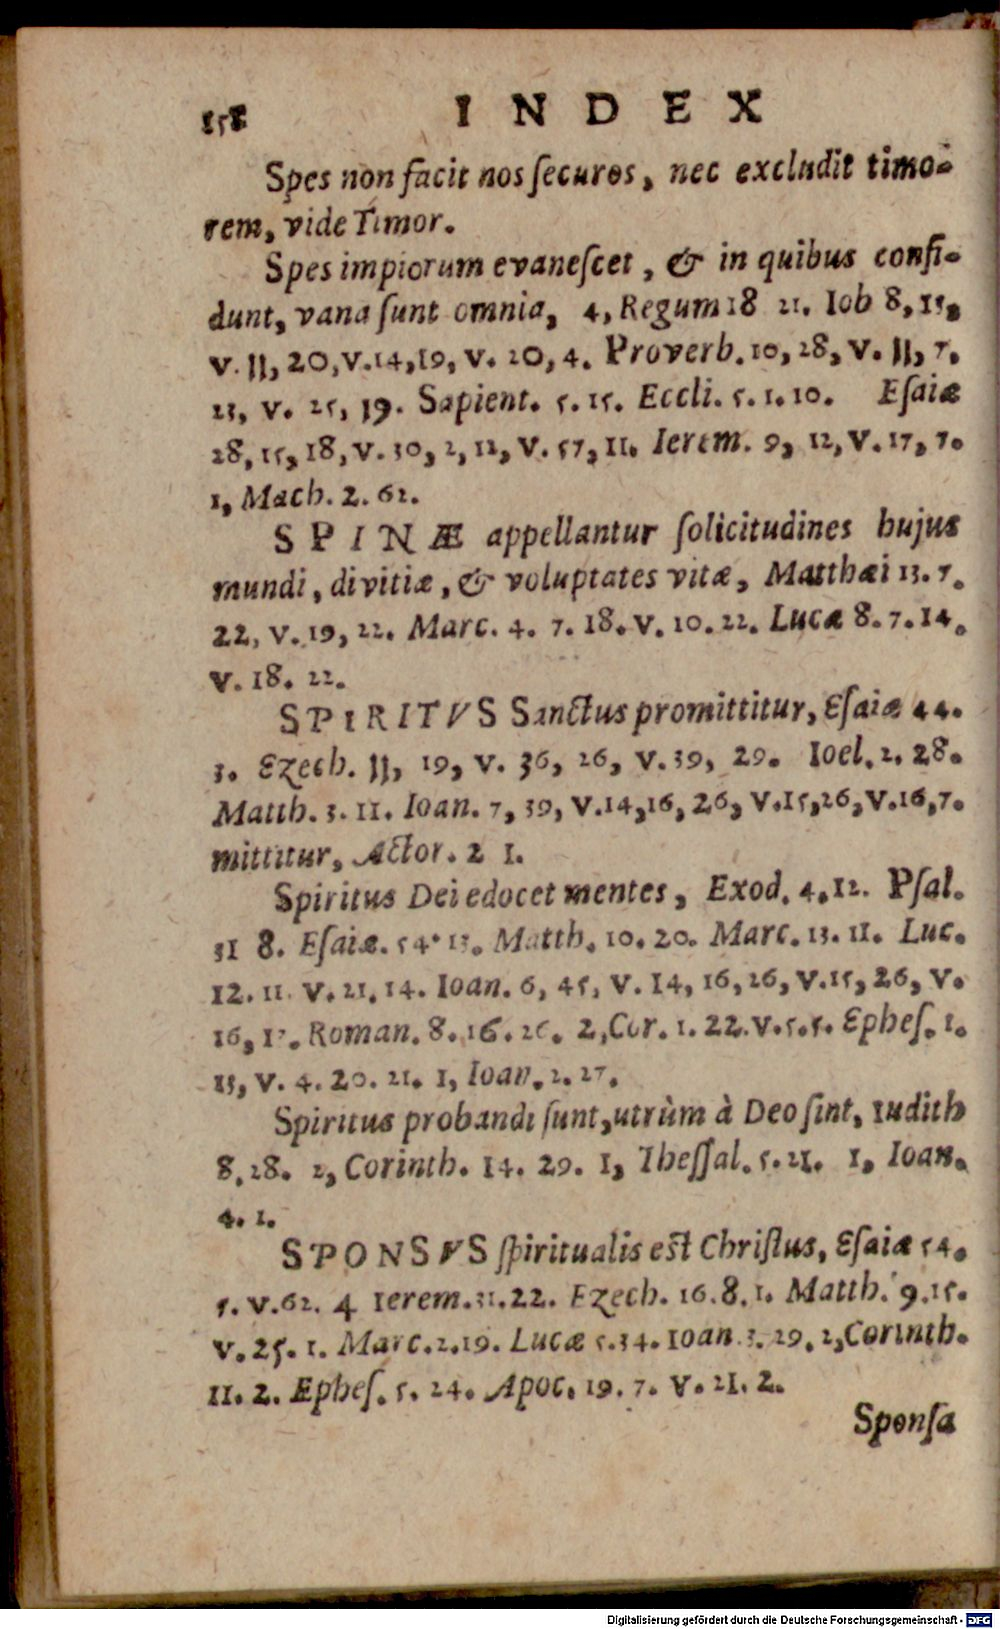 158 INDEX
Spes non facit nos ſecuros, nec excludit timo-
rem, vide Timor.
Spes impiorum evaneſcet, & in quibus confi-
dunt, vana ſunt omnia, 4, Regum 18 21. Iob 8, 15,
v. 11, 20, v. 14, 19, v. 20, 4. Proverb. 10, 28, v. 11, 7.
23, v. 25, 19. Sapient. 5. 15. Eccli. 5. 1. 10. Eſaiæ
28, 15, 18, v. 30, 2, 12, v. 57, 11. Ierem. 9, 12, v. 17, 7.
1, Mach. 2. 62.
SPINÆ appellantur ſolicitudines hujus
mundi, divitiæ, & voluptates vitæ, Matthæi 13. 7.
22, v. 19, 22. Marc. 4. 7. 18. v. 10. 22. Lucæ 8. 7. 14.
v. 18. 22.
SPIRITVS Sanctus promittitur, Eſaiæ 44.
3. Ezech. 11, 19, v. 36, 26, v. 39, 29. Ioel. 2. 28.
Matth. 3. 11. Ioan. 7, 39, v. 14, 16, 26, v. 15, 26, v. 16, 7.
mittitur, Actor. 2 1.
Spiritus Dei edocet mentes, Exod. 4, 12. Pſal.
31 8. Eſaiæ. 54. 13. Matth. 10. 20. Marc. 13. 11. Luc.
12. 11 v. 21. 14. Ioan. 6, 45, v. 14, 16, 26, v. 15, 26, v.
16, 13. Roman. 8. 16. 26. 2, Cor. 1. 22. v. 5. 5. Epheſ. 1.
13, v. 4. 20. 21. 1, Ioan. 2. 27.
Spiritus probandi ſunt, utrùm à Deo ſint, Iudith
8. 28. 2, Corinth. 14. 29. 1, Theſſal. 5. 21. 1, Ioan.
4. 1.
SPONSVS ſpiritualis eſt Chriſtus, Eſaiæ 54.
5. v. 62. 4 Ierem. 31. 22. Ezech. 16. 8. 1. Matth. 9. 15.
v. 25. 1. Marc. 2. 19. Lucæ 5. 34. Ioan 3. 29. 2, Corinth.
11. 2. Epheſ. 5. 24. Apoc. 19. 7. v. 21. 2.
Sponſa
Digitalisierung gefördert durch die Deutsche Forschungsgemeinschaft - DFG